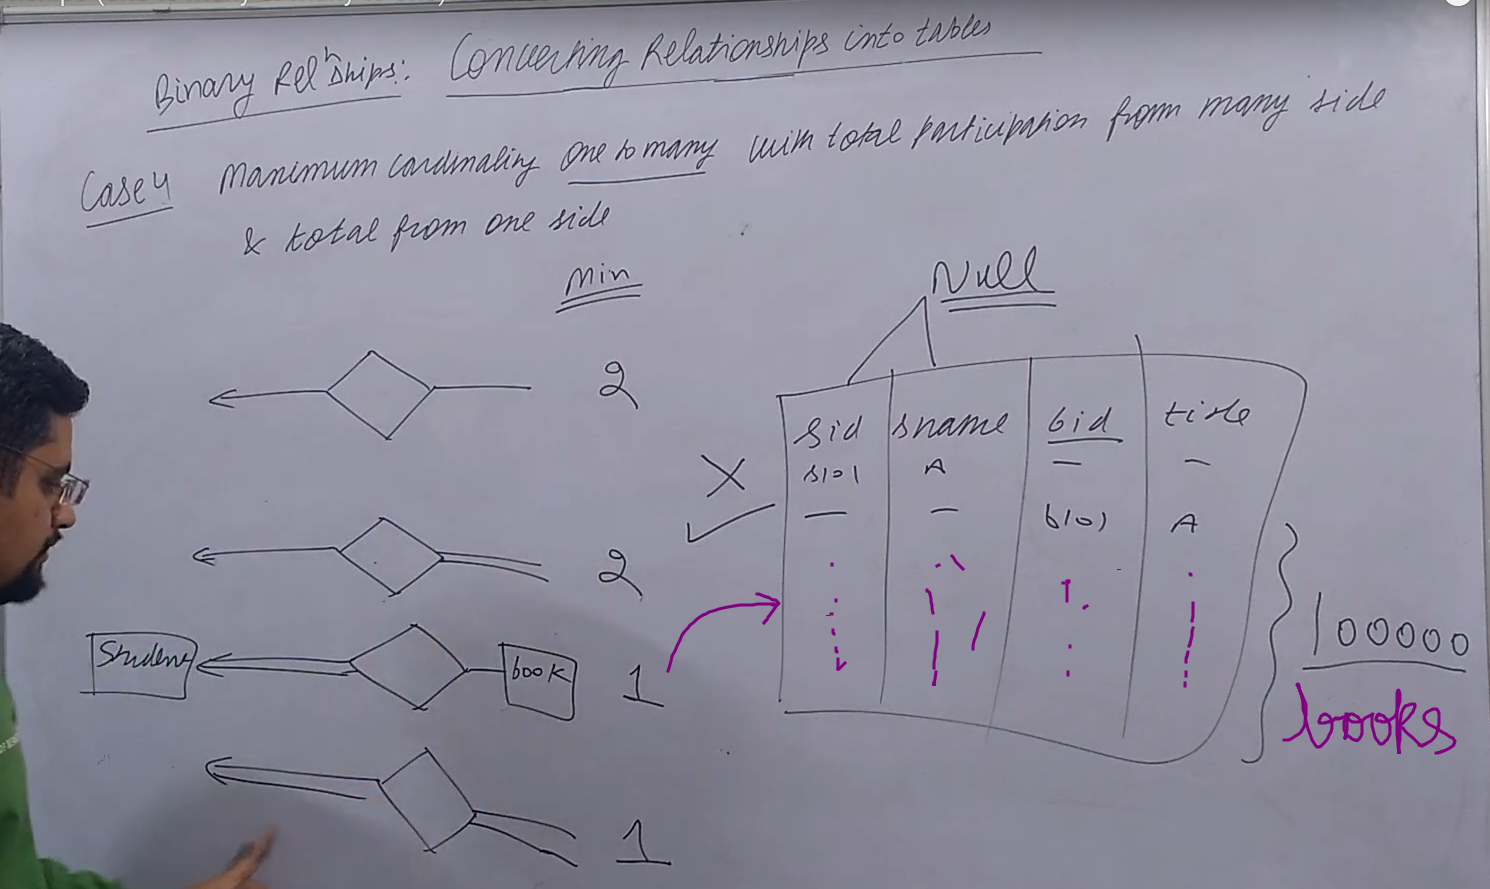 Binary Relnships: Converting Relationships into tables
Case 4 Maximum cardinality one to many with total participation from many side
& total from one side
Min
Null
2
2
Student
book
1
1
sid sname bid title
s101 A — —
— — b101 A
100000
books